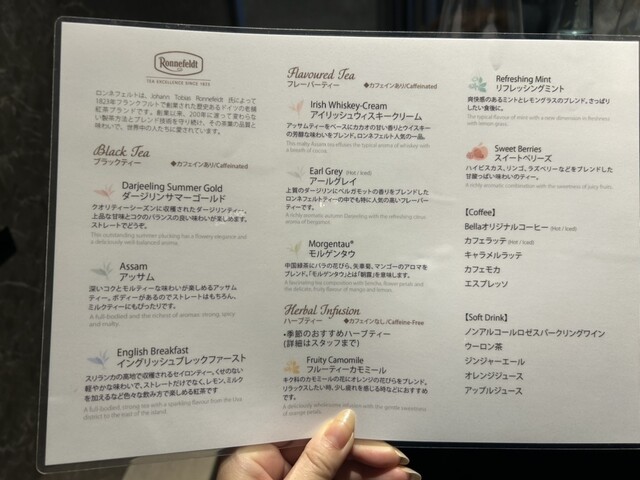 Ronnefeldt
TEA EXCELLENCE SINCE 1823
ロンネフェルトは、Johann Tobias Ronnefeldt 氏によって
1823年フランクフルトで創業された歴史あるドイツの老舗
紅茶ブランドです。創業以来、200年に渡って変わらな
い製茶方法とブレンド技術を守り続け、その茶葉の品質と
味わいで、世界中の人たちに愛されています。
Black Tea
ブラックティー ◆カフェインあり/Caffeinated
Darjeeling Summer Gold
ダージリンサマーゴールド
クオリティーシーズンに収穫されたダージリンティー。
上品な甘味とコクのバランスの良い味わいが楽しめます。
ストレートでどうぞ。
This outstanding summer plucking has a flowery elegance and
a deliciously well-balanced aroma.
Assam
アッサム
深いコクとモルティーな味わいが楽しめるアッサム
ティー。ボディーがあるのでストレートはもちろん、
ミルクティーにもぴったりです。
A full-bodied and the richest of aromas: strong, spicy
and malty.
English Breakfast
イングリッシュブレックファースト
スリランカの高地で収穫されるセイロンティー。くせのない
軽やかな味わいで、ストレートだけでなく、レモン、ミルク
を加えるなど色々な飲み方で楽しめる紅茶です
A full-bodied, strong tea with a sparkling flavour from the Uva
district to the east of the island.
Flavoured Tea
フレーバーティー ◆カフェインあり/Caffeinated
Irish Whiskey-Cream
アイリッシュウィスキークリーム
アッサムティーをベースにカカオの甘い香りとウイスキー
の芳醇な味わいをブレンド。ロンネフェルト人気の一品。
This malty Assam tea effuses the typical aroma of whiskey with
a breath of cocoa.
Earl Grey (Hot / Iced)
アールグレイ
上質のダージリンにベルガモットの香りをブレンドした
ロンネフェルトティーの中でも特に人気の高いフレーバー
ティーです。
A richly aromatic autumn Darjeeling with the refreshing citrus
aroma of bergamot.
Morgentau®
モルゲンタウ
中国緑茶にバラの花びら、矢車菊、マンゴーのアロマを
ブレンド。「モルゲンタウ」とは「朝露」を意味します。
A fascinating tea composition with Sencha, flower petals and
the delicate, fruity flavour of mango and lemon.
Herbal Infusion
ハーブティー ◆カフェインなし/Caffeine-Free
・季節のおすすめハーブティー
(詳細はスタッフまで)
Fruity Camomile
フルーティーカモミール
キク科のカモミールの花にオレンジの花びらをブレンド。
リラックスしたい時、少し疲れを感じる時などにおすすめ
です。
A deliciously wholesome infusion with the gentle sweetness
of orange petals.
Refreshing Mint
リフレッシングミント
爽快感のあるミントとレモングラスのブレンド。さっぱり
したい食後に。
The typical flavour of mint with a new dimension in freshness
with lemon grass.
Sweet Berries
スイートベリーズ
ハイビスカス、リンゴ、ラズベリーなどをブレンドした
甘酸っぱい味わいのティー。
A richly aromatic combination with the sweetness of juicy fruits.
【Coffee】
Bellaオリジナルコーヒー (Hot / Iced)
カフェラッテ (Hot / Iced)
キャラメルラッテ
カフェモカ
エスプレッソ
【Soft Drink】
ノンアルコールロゼスパークリングワイン
ウーロン茶
ジンジャーエール
オレンジジュース
アップルジュース